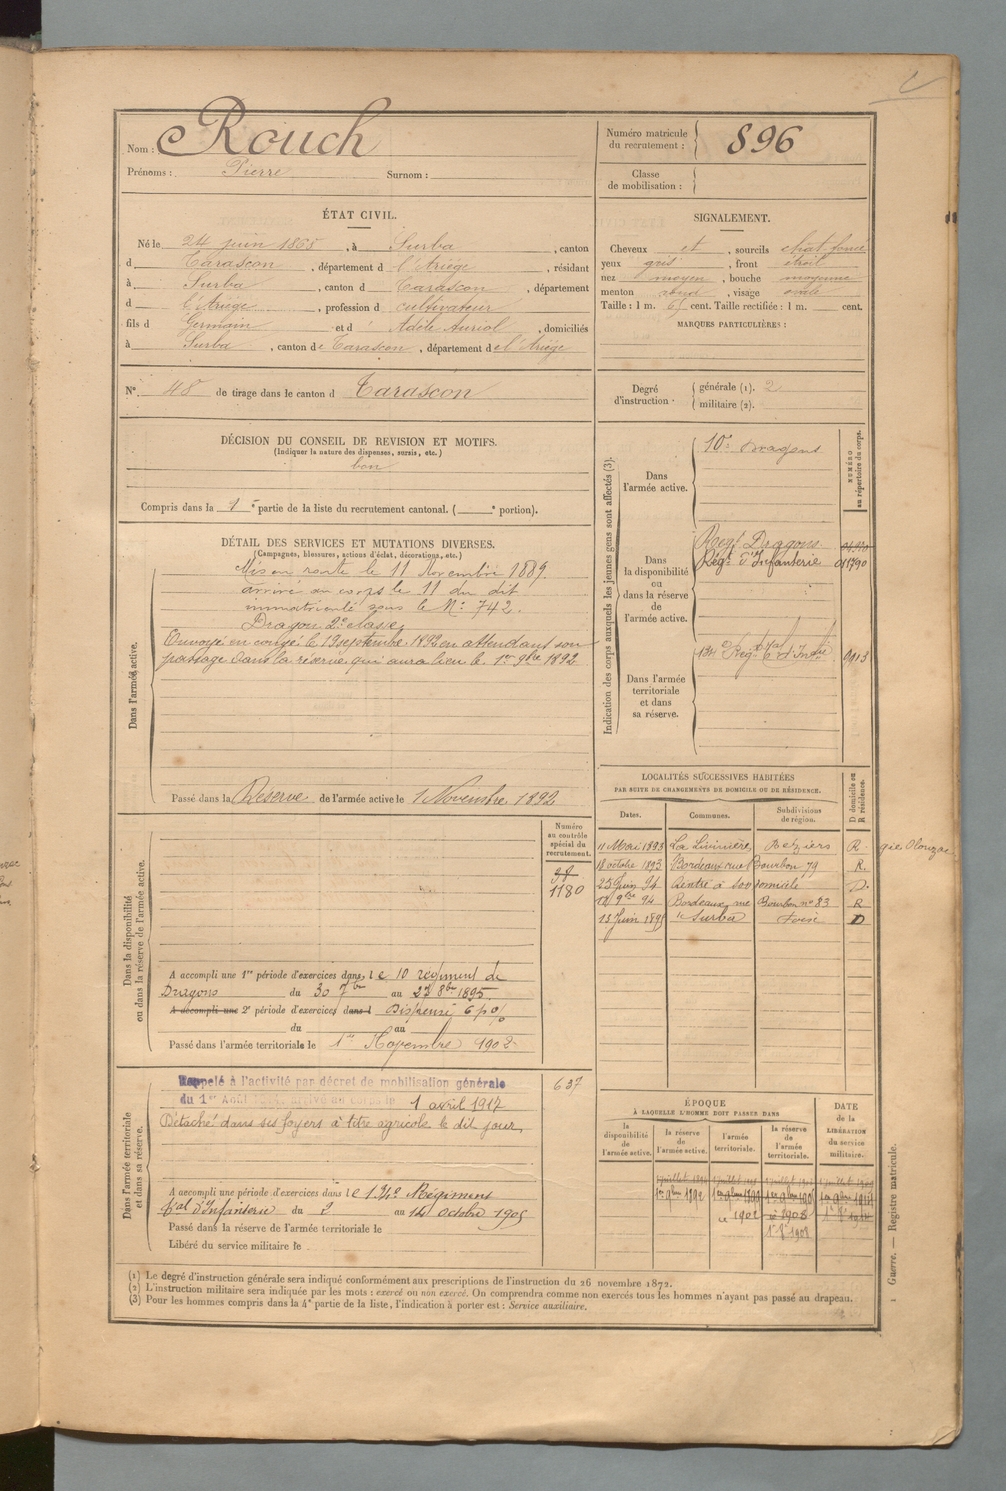 Nom : Rouch
Prénoms : Pierre Surnom :
Numéro matricule
du recrutement : 896
Classe
de mobilisation :
ÉTAT CIVIL.
Né le 24 juin 1868, à Surba, canton
d Tarascon, département d l'Ariège, résidant
à Surba, canton d Tarascon, département
d l'Ariège, profession d cultivateur
fils d Germain et d Adèle Auriol, domiciliés
à Surba, canton de Tarascon, département de l'Ariège
N° 48 de tirage dans le canton d Tarascon
SIGNALEMENT.
Cheveux et, sourcils chat. foncé
yeux gris, front étroit
nez moyen, bouche moyenne
menton rond, visage ovale
Taille : 1 m. 65 cent. Taille rectifiée : 1 m. cent.
MARQUES PARTICULIÈRES :
Degré
d'instruction :
générale (1). 2
militaire (2).
DÉCISION DU CONSEIL DE REVISION ET MOTIFS.
(Indiquer la nature des dispenses, sursis, etc.)
bon
Compris dans la 1re partie de la liste du recrutement cantonal. ( e portion).
DÉTAIL DES SERVICES ET MUTATIONS DIVERSES.
(Campagnes, blessures, actions d'éclat, décorations, etc.)
Dans l'armée active.
Mis en route le 11 Novembre 1889.
arrivé au corps le 11 du dit
immatriculé sous le N° 742.
Dragon 2e classe,
Envoyé en congé le 19 septembre 1892 en attendant son
passage dans la réserve qui aura lieu le 1er 9bre 1892
Passé dans la Réserve de l'armée active le 1 Novembre 1892
Indication des corps auxquels les jeunes gens sont affectés (3).
NUMÉRO
au répertoire du corps.
Dans
l'armée active.
10e Dragons
Dans
la disponibilité
ou
dans la réserve
de
l'armée active.
Régt Dragons
Régt d'Infanterie 01790
Dans l'armée
territoriale
et dans
sa réserve.
134e Régt tal d'Infie 0913
LOCALITÉS SUCCESSIVES HABITÉES
PAR SUITE DE CHANGEMENTS DE DOMICILE OU DE RÉSIDENCE.
Dates. Communes. Subdivisions
de région.
D domicile ou
R résidence.
11 Mai 1893 La Livinière Beziers R. gie Olonzac
18 octobre 1893 Bordeaux rue Bourbon 79 R.
25 Juin 94 Rentré à son domicile D.
9bre 94 Bordeaux, rue Bourbon n° 83 R
13 Juin 1895 Surba Foix D
Dans la disponibilité
ou dans la réserve de l'armée active.
Numéro
au contrôle
spécial du
recrutement.
1180
A accompli une 1re période d'exercices dans le 10 régiment de
Dragons du 30 7bre au 27 8bre 1895.
A accompli une 2e période d'exercices dans l Dispensé 6 p %
du au
Passé dans l'armée territoriale le 1er Novembre 1902
Dans l'armée territoriale
et dans sa réserve.
637
Rappelé à l'activité par décret de mobilisation générale
du 1er Août 1914, arrivé au corps le 1 avril 1917
Détaché dans ses foyers à titre agricole le dit jour,
A accompli une période d'exercices dans le 134e Régiment
tal d'Infanterie du 2 au 14 Octobre 1905
Passé dans la réserve de l'armée territoriale le
Libéré du service militaire le
ÉPOQUE
À LAQUELLE L'HOMME DOIT PASSER DANS
DATE
de la
LIBÉRATION
du service
militaire.
la
disponibilité
de
l'armée active.
la réserve
de
l'armée active.
l'armée
territoriale.
la réserve
de
l'armée
territoriale.
1er 9bre 1892 1er 9bre 1899
1902 1908
(1) Le degré d'instruction générale sera indiqué conformément aux prescriptions de l'instruction du 26 novembre 1872.
(2) L'instruction militaire sera indiquée par les mots : exercé ou non exercé. On comprendra comme non exercés tous les hommes n'ayant pas passé au drapeau.
(3) Pour les hommes compris dans la 4e partie de la liste, l'indication à porter est : Service auxiliaire.
1 Guerre. — Registre matricule.